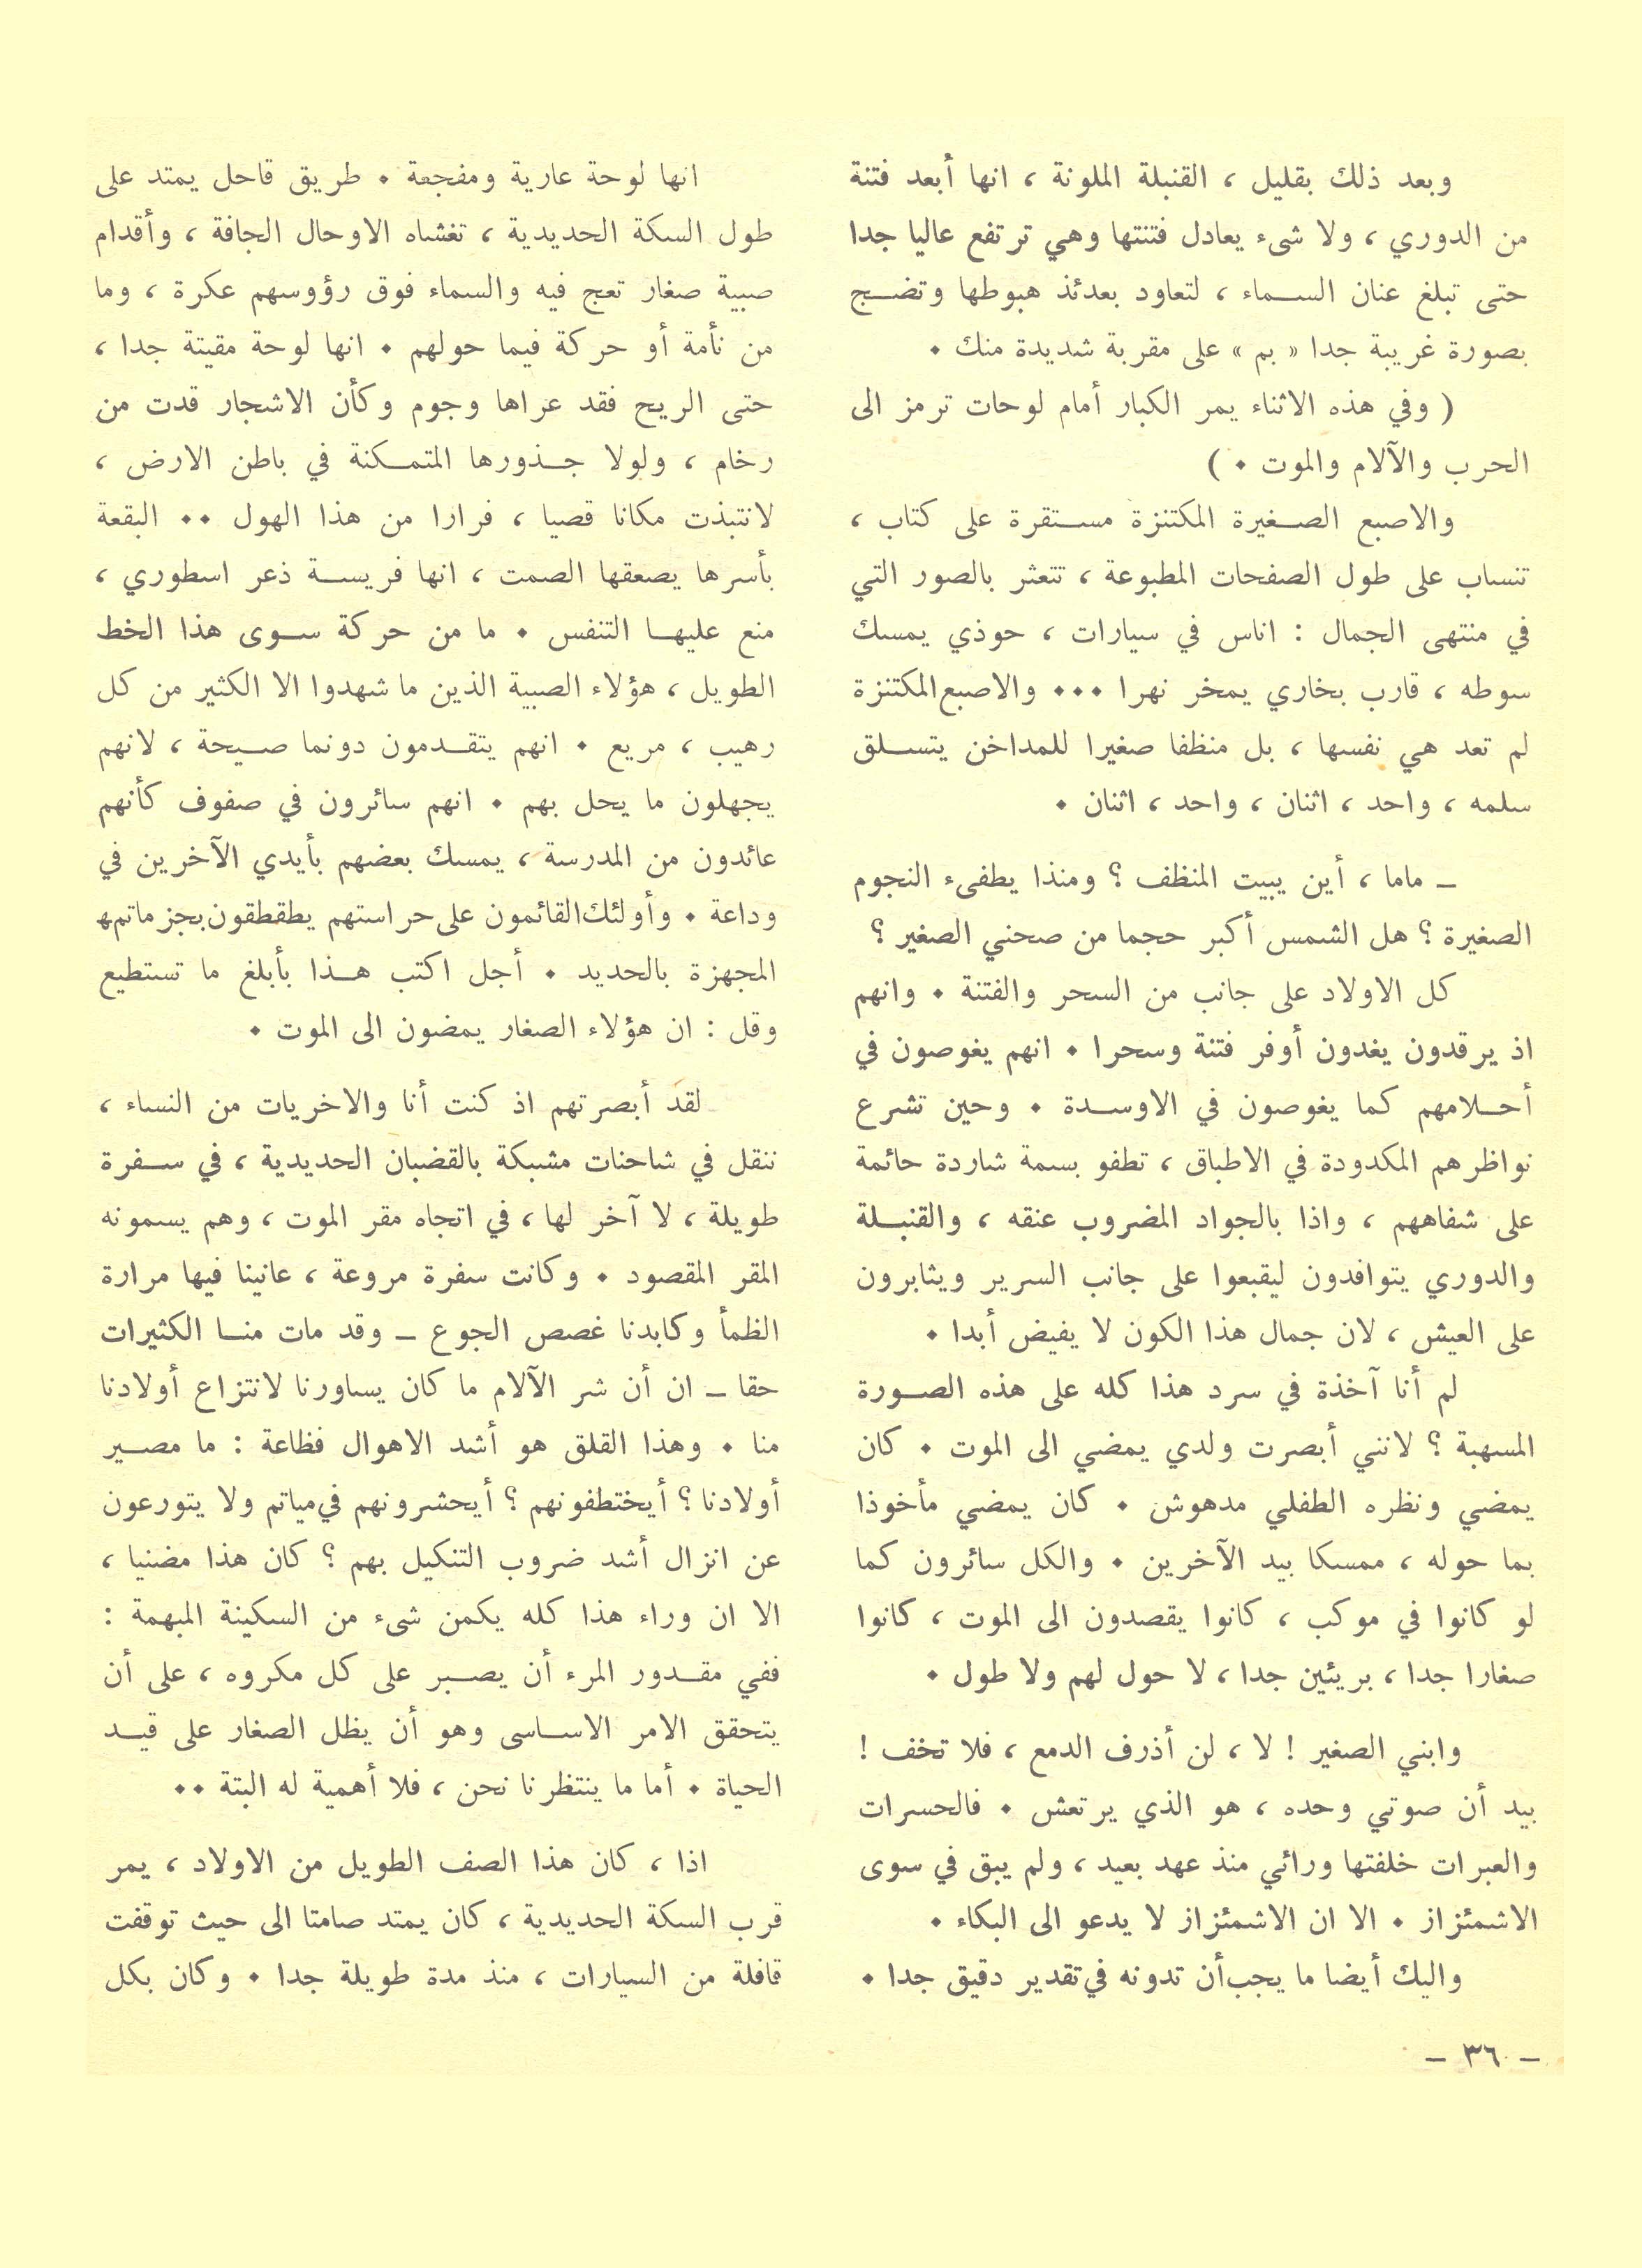 وبعد ذلك بقليل ، القنبلة الملونة ، انها أبعد فتنة
من الدوري ، ولا شىء يعادل فتنتها وهي ترتفع عاليا جدا
حتى تبلغ عنان السماء ، لتعاود بعدئذ هبوطها وتضج
بصورة غريبة جدا « بم » على مقربة شديدة منك .
( وفي هذه الاثناء يمر الكبار أمام لوحات ترمز الى
الحرب والآلام والموت . )
والاصبع الصغيرة المكتنزة مستقرة على كتاب ،
تنساب على طول الصفحات المطبوعة ، تتعثر بالصور التي
في منتهى الجمال : اناس في سيارات ، حوذي يمسك
سوطه ، قارب بخاري يمخر نهرا ... والاصبع المكتنزة
لم تعد هي نفسها ، بل منظفا صغيرا للمداخن يتسلق
سلمه ، واحد ، اثنان ، واحد ، اثنان .
ـ ماما ، أين يبيت المنظف ؟ ومنذا يطفىء النجوم
الصغيرة ؟ هل الشمس أكبر حجما من صحني الصغير ؟
كل الاولاد على جانب من السحر والفتنة . وانهم
اذ يرقدون يغدون أوفر فتنة وسحرا . انهم يغوصون في
أحلامهم كما يغوصون في الاوسدة . وحين تشرع
نواظرهم المكدودة في الاطباق ، تطفو بسمة شاردة حائمة
على شفاههم ، واذا بالجواد المضروب عنقه ، والقنبلة
والدوري يتوافدون ليقبعوا على جانب السرير ويثابرون
على العيش ، لان جمال هذا الكون لا يفيض أبدا .
لم أنا آخذة في سرد هذا كله على هذه الصورة
المسهبة ؟ لانني أبصرت ولدي يمضي الى الموت . كان
يمضي ونظره الطفلي مدهوش . كان يمضي مأخوذا
بما حوله ، ممسكا بيد الآخرين . والكل سائرون كما
لو كانوا في موكب ، كانوا يقصدون الى الموت ، كانوا
صغارا جدا ، بريئين جدا ، لا حول لهم ولا طول .
وابني الصغير ! لا ، لن أذرف الدمع ، فلا تخف !
بيد أن صوتي وحده ، هو الذي يرتعش . فالحسرات
والعبرات خلفتها ورائي منذ عهد بعيد ، ولم يبق في سوى
الاشمئزاز . الا ان الاشمئزاز لا يدعو الى البكاء .
واليك أيضا ما يجب أن تدونه في تقدير دقيق جدا .
انها لوحة عارية ومفجعة . طريق قاحل يمتد على
طول السكة الحديدية ، تغشاه الاوحال الجافة ، وأقدام
صبية صغار تعج فيه والسماء فوق رؤوسهم عكرة ، وما
من نأمة أو حركة فيما حولهم . انها لوحة مقيتة جدا ،
حتى الريح فقد عراها وجوم وكأن الاشجار قدت من
رخام ، ولولا جذورها المتمكنة في باطن الارض ،
لانتبذت مكانا قصيا ، فرارا من هذا الهول .. البقعة
بأسرها يصعقها الصمت ، انها فريسة ذعر اسطوري ،
منع عليها التنفس . ما من حركة سوى هذا الخط
الطويل ، هؤلاء الصبية الذين ما شهدوا الا الكثير من كل
رهيب ، مريع . انهم يتقدمون دونما صيحة ، لانهم
يجهلون ما يحل بهم . انهم سائرون في صفوف كأنهم
عائدون من المدرسة ، يمسك بعضهم بأيدي الآخرين في
وداعة . وأولئك القائمون على حراستهم يطقطقون بجزماتهم
المجهزة بالحديد . أجل اكتب هذا بأبلغ ما تستطيع
وقل : ان هؤلاء الصغار يمضون الى الموت .
لقد أبصرتهم اذ كنت أنا والاخريات من النساء ،
ننقل في شاحنات مشبكة بالقضبان الحديدية ، في سفرة
طويلة ، لا آخر لها ، في اتجاه مقر الموت ، وهم يسمونه
المقر المقصود . وكانت سفرة مروعة ، عانينا فيها مرارة
الظمأ وكابدنا غصص الجوع ـ وقد مات منا الكثيرات
حقا ـ ان أن شر الآلام ما كان يساورنا لانتزاع أولادنا
منا . وهذا القلق هو أشد الاهوال فظاعة : ما مصير
أولادنا ؟ أيختطفونهم ؟ أيحشرونهم في مياتم ولا يتورعون
عن انزال أشد ضروب التنكيل بهم ؟ كان هذا مضنيا ،
الا ان وراء هذا كله يكمن شىء من السكينة المبهمة :
ففي مقدور المرء أن يصبر على كل مكروه ، على أن
يتحقق الامر الاساسى وهو أن يظل الصغار على قيد
الحياة . أما ما ينتظرنا نحن ، فلا أهمية له البتة ..
اذا ، كان هذا الصف الطويل من الاولاد ، يمر
قرب السكة الحديدية ، كان يمتد صامتا الى حيث توقفت
قافلة من السيارات ، منذ مدة طويلة جدا . وكان بكل
ـ ٣٦ ـ